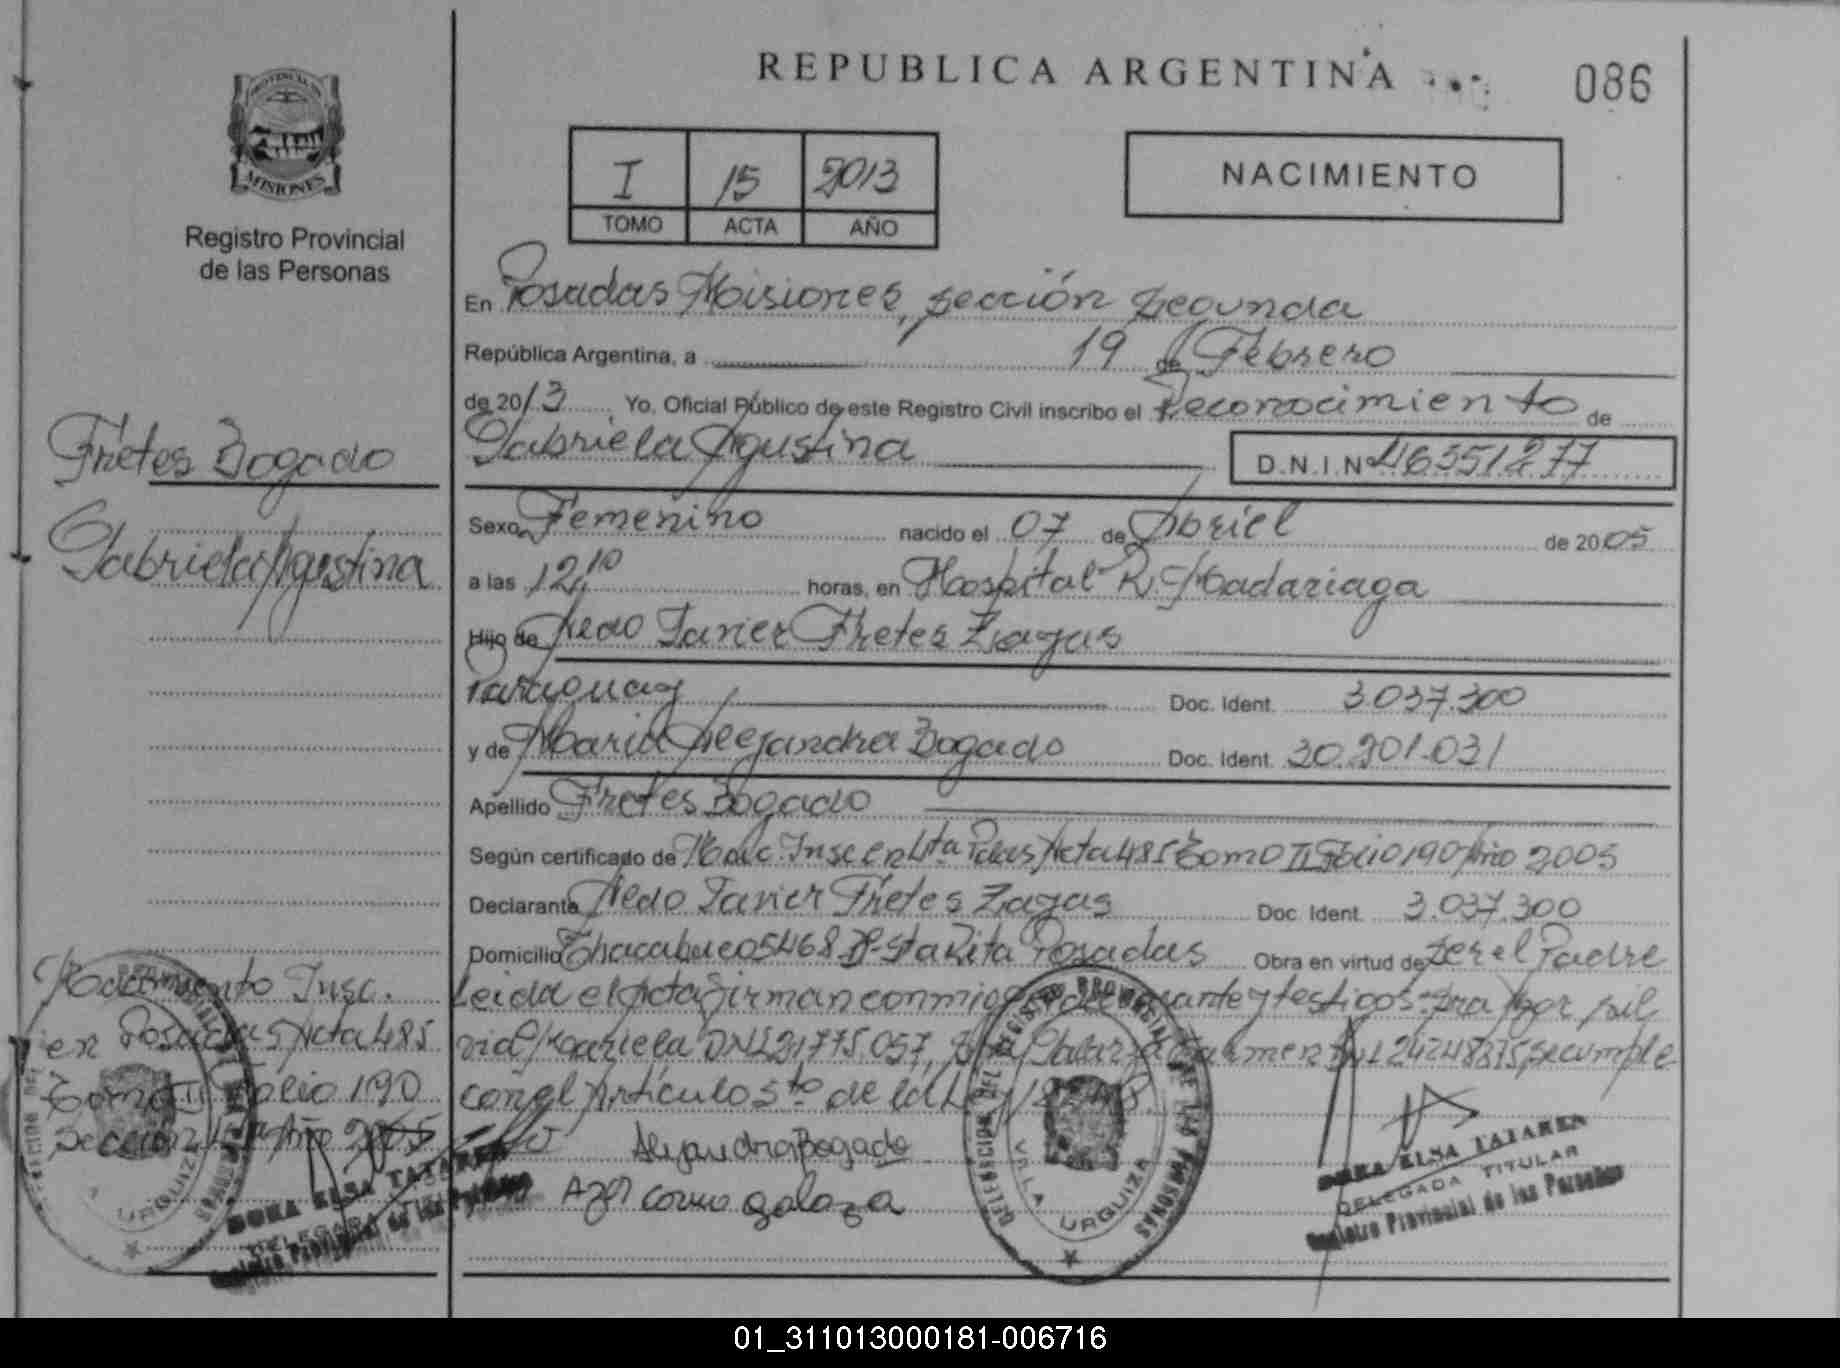 REPUBLICA ARGENTINA
086
PROVINCIA DE
MISIONES
Registro Provincial
de las Personas
I 15 2013
TOMO ACTA AÑO
NACIMIENTO
En Posadas Misiones, Sección Segunda
República Argentina, a 19 de Febrero
de 2013 Yo, Oficial Público de este Registro Civil inscribo el Reconocimiento de
Gabriela Agustina
D.N.I.Nº 46351277
Fretes Bogado
Gabriela Agustina
Sexo Femenino nacido el 07 de Abril de 2005
a las 12,10 horas, en Hospital R. Madariaga
Hijo de Aldo Javier Fretes Zayas
Paraguay Doc. Ident. 3.037.300
y de Maria Alejandra Bogado Doc. Ident. 30.901.031
Apellido Fretes Bogado
Según certificado de Nac. Insc en 4ta Pdas Acta 485 Tomo II Folio 190 Año 2005
Declarante Aldo Javier Fretes Zayas Doc. Ident. 3.037.300
Domicilio Chacabuco 5468 Bº Sta Rita Posadas Obra en virtud de Ser el Padre
Leida el Acta firman conmigo el declarante y testigos Sra
Mariela DNI 21.775.057, Carmen DNI 24248875, se cumple
con el Artículo 5to de la Ley 18248
Alejandra Bogado
Nacimiento Insc.
en Posadas Acta 485
Tomo II Folio 190
Sección 4ta Año 2005
DELEGACION DEL REGISTRO PROVINCIAL DE LAS PERSONAS
VILLA URQUIZA
DORA ELSA TATAREN
DELEGADA TITULAR
Registro Provincial de las Personas
URGUIZA
DORA ELSA TATAREN
DELEGADA
Registro Provincial de las Personas
01_311013000181-006716